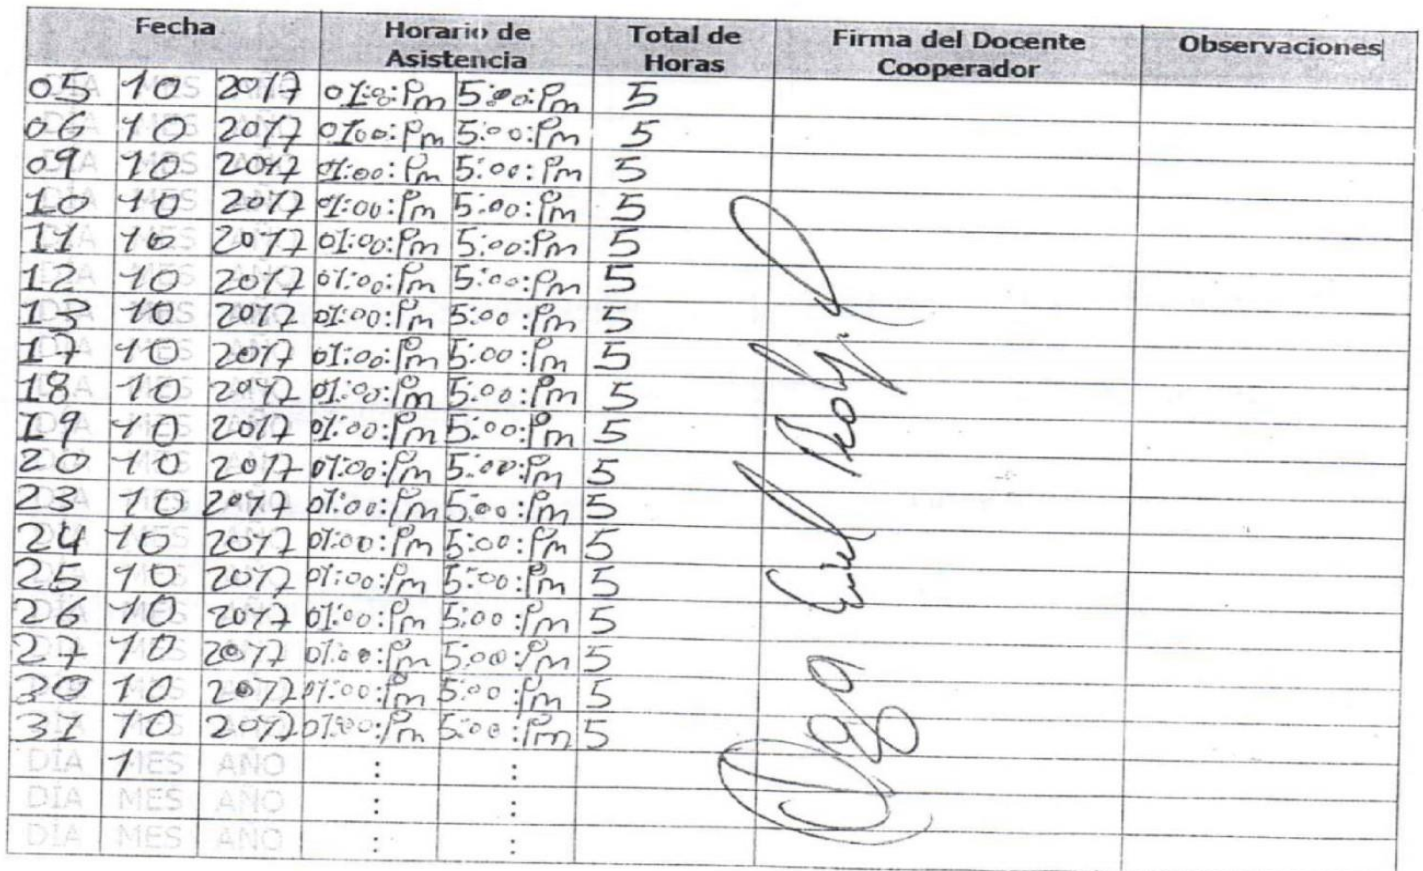 Fecha Horario de Asistencia Total de Horas Firma del Docente Cooperador Observaciones
05 10 2017 01:00:Pm 5:00:Pm 5
06 10 2017 01:00:Pm 5:00:Pm 5
09 10 2017 01:00:Pm 5:00:Pm 5
10 10 2017 01:00:Pm 5:00:Pm 5
11 10 2017 01:00:Pm 5:00:Pm 5
12 10 2017 01:00:Pm 5:00:Pm 5
13 10 2017 01:00:Pm 5:00:Pm 5
17 10 2017 01:00:Pm 5:00:Pm 5
18 10 2017 01:00:Pm 5:00:Pm 5
19 10 2017 01:00:Pm 5:00:Pm 5
20 10 2017 01:00:Pm 5:00:Pm 5
23 10 2017 01:00:Pm 5:00:Pm 5
24 10 2017 01:00:Pm 5:00:Pm 5
25 10 2017 01:00:Pm 5:00:Pm 5
26 10 2017 01:00:Pm 5:00:Pm 5
27 10 2017 01:00:Pm 5:00:Pm 5
30 10 2017 01:00:Pm 5:00:Pm 5
31 10 2017 01:00:Pm 5:00:Pm 5
DÍA 1 MES AÑO : :
DÍA MES AÑO : :
DÍA MES AÑO : :
Olga